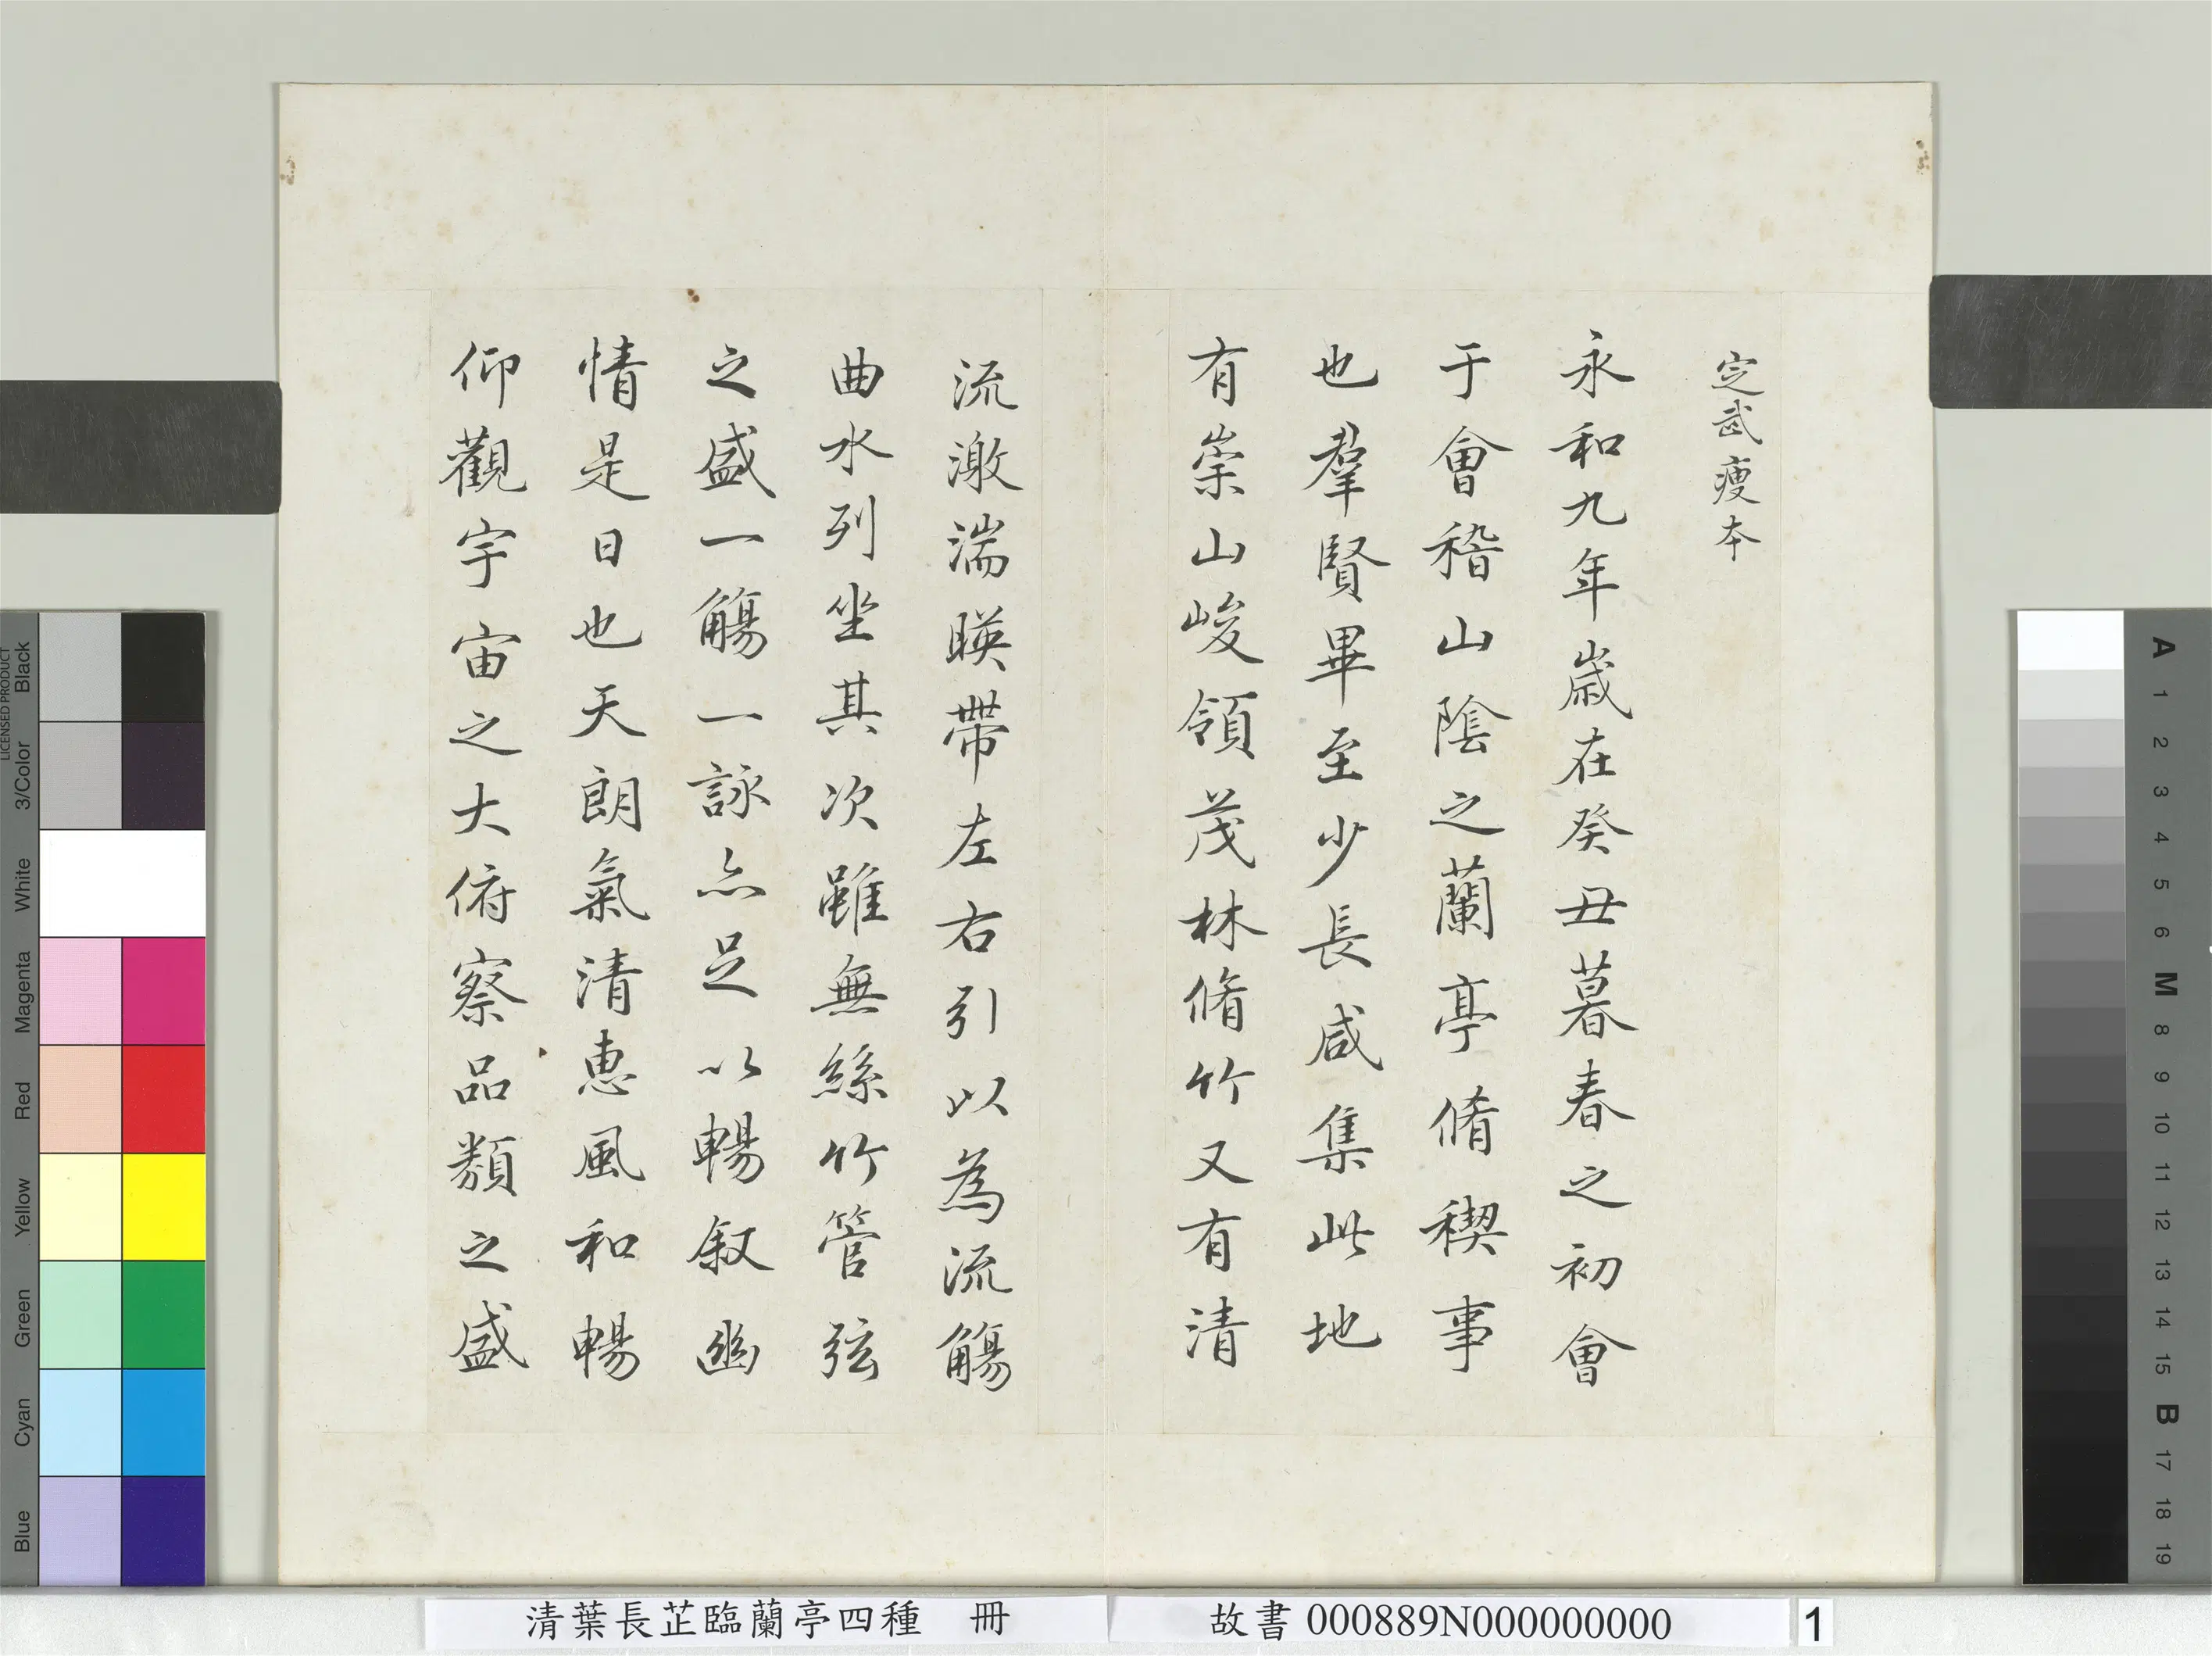 定武瘦本
永和九年歲在癸丑暮春之初會
于會稽山陰之蘭亭脩稧事
也羣賢畢至少長咸集此地
有崇山峻領茂林脩竹又有清
流激湍暎帶左右引以為流觴
曲水列坐其次雖無絲竹管弦
之盛一觴一詠亦足以暢叙幽
情是日也天朗氣清恵風和暢
仰觀宇宙之大俯察品類之盛
清葉長芷臨蘭亭四種 冊
故書000889N000000000
1
LICENSED PRODUCT
Black
3/Color
White
Magenta
Red
Yellow
Green
Cyan
Blue
A
1
2
3
4
5
6
M
8
9
10
11
12
13
14
15
B
17
18
19